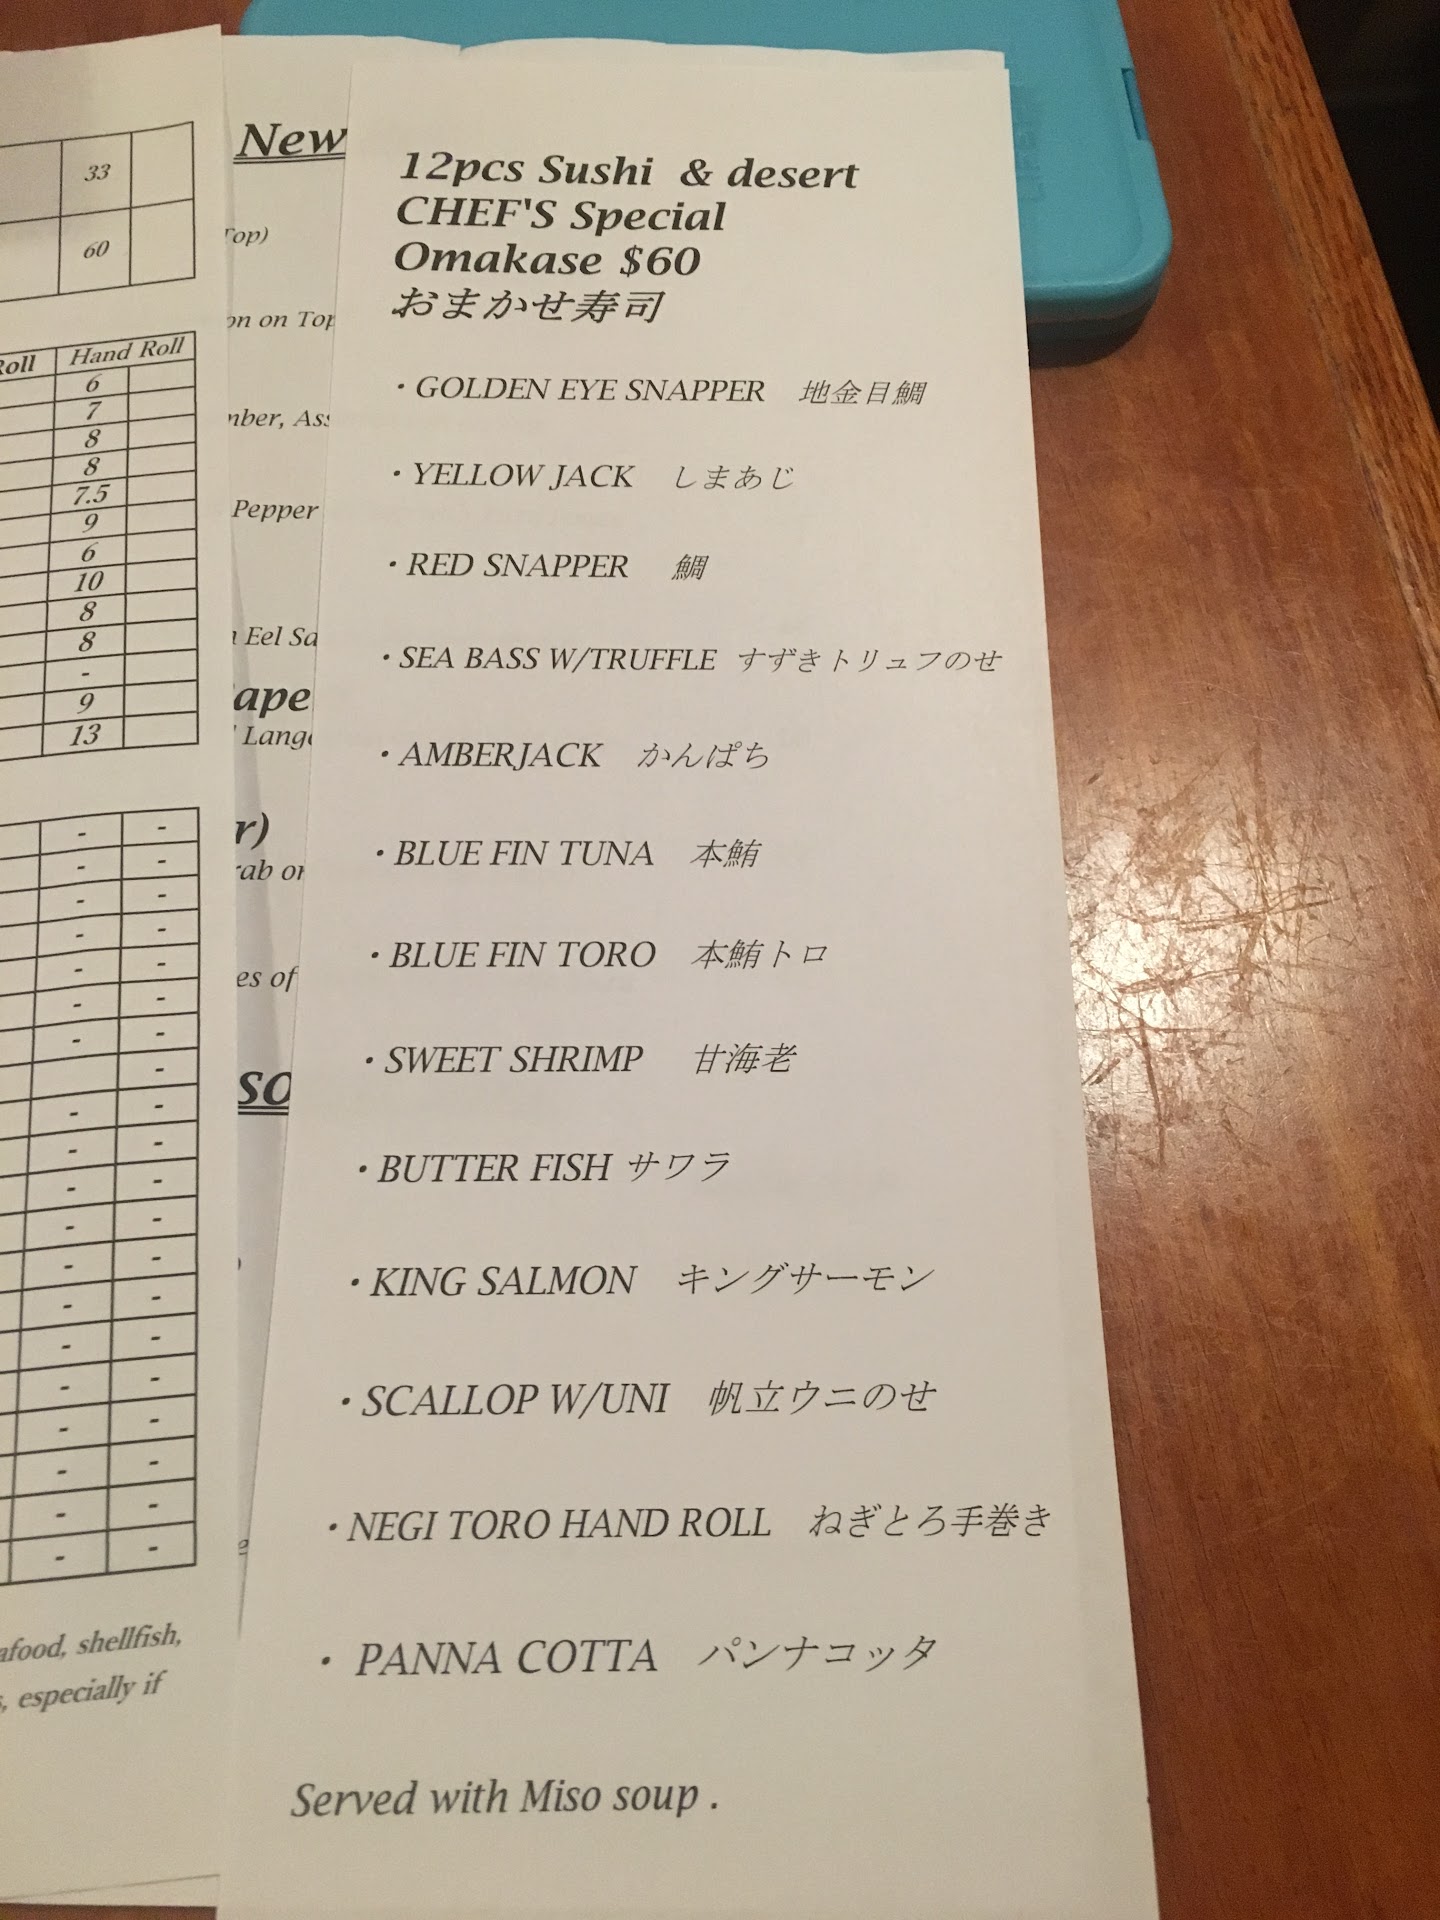 33
60
Roll Hand Roll
6
7
8
8
7.5
9
6
10
8
8
-
9
13
- -
- -
- -
- -
- -
- -
- -
-
- -
- -
- -
- -
- -
- -
- -
- -
- -
- -
- -
- -
afood, shellfish,
, especially if
New
Top)
on on Top
mber, Ass
Pepper
Eel Sa
ape
Lang
r)
rab or
es of
so
12pcs Sushi & desert
CHEF'S Special
Omakase $60
おまかせ寿司
・GOLDEN EYE SNAPPER 地金目鯛
・YELLOW JACK しまあじ
・RED SNAPPER 鯛
・SEA BASS W/TRUFFLE すずきトリュフのせ
・AMBERJACK かんぱち
・BLUE FIN TUNA 本鮪
・BLUE FIN TORO 本鮪トロ
・SWEET SHRIMP 甘海老
・BUTTER FISH サワラ
・KING SALMON キングサーモン
・SCALLOP W/UNI 帆立ウニのせ
・NEGI TORO HAND ROLL ねぎとろ手巻き
・PANNA COTTA パンナコッタ
Served with Miso soup .